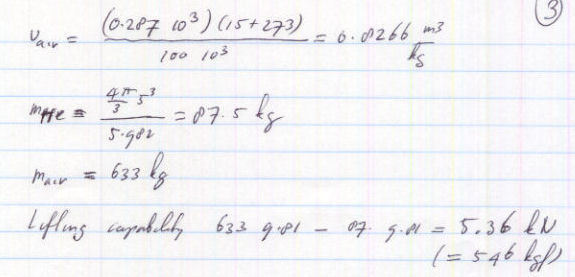 3
v_air = (0.287 10^3) (15+273) / 100 10^3 = 0.8266 m3/kg
m_He = 4π/3 5^3 / 5.982 = 87.5 kg
m_air = 633 kg
Lifting capability 633 9.81 - 87. 9.81 = 5.36 kN
(= 546 kgf)